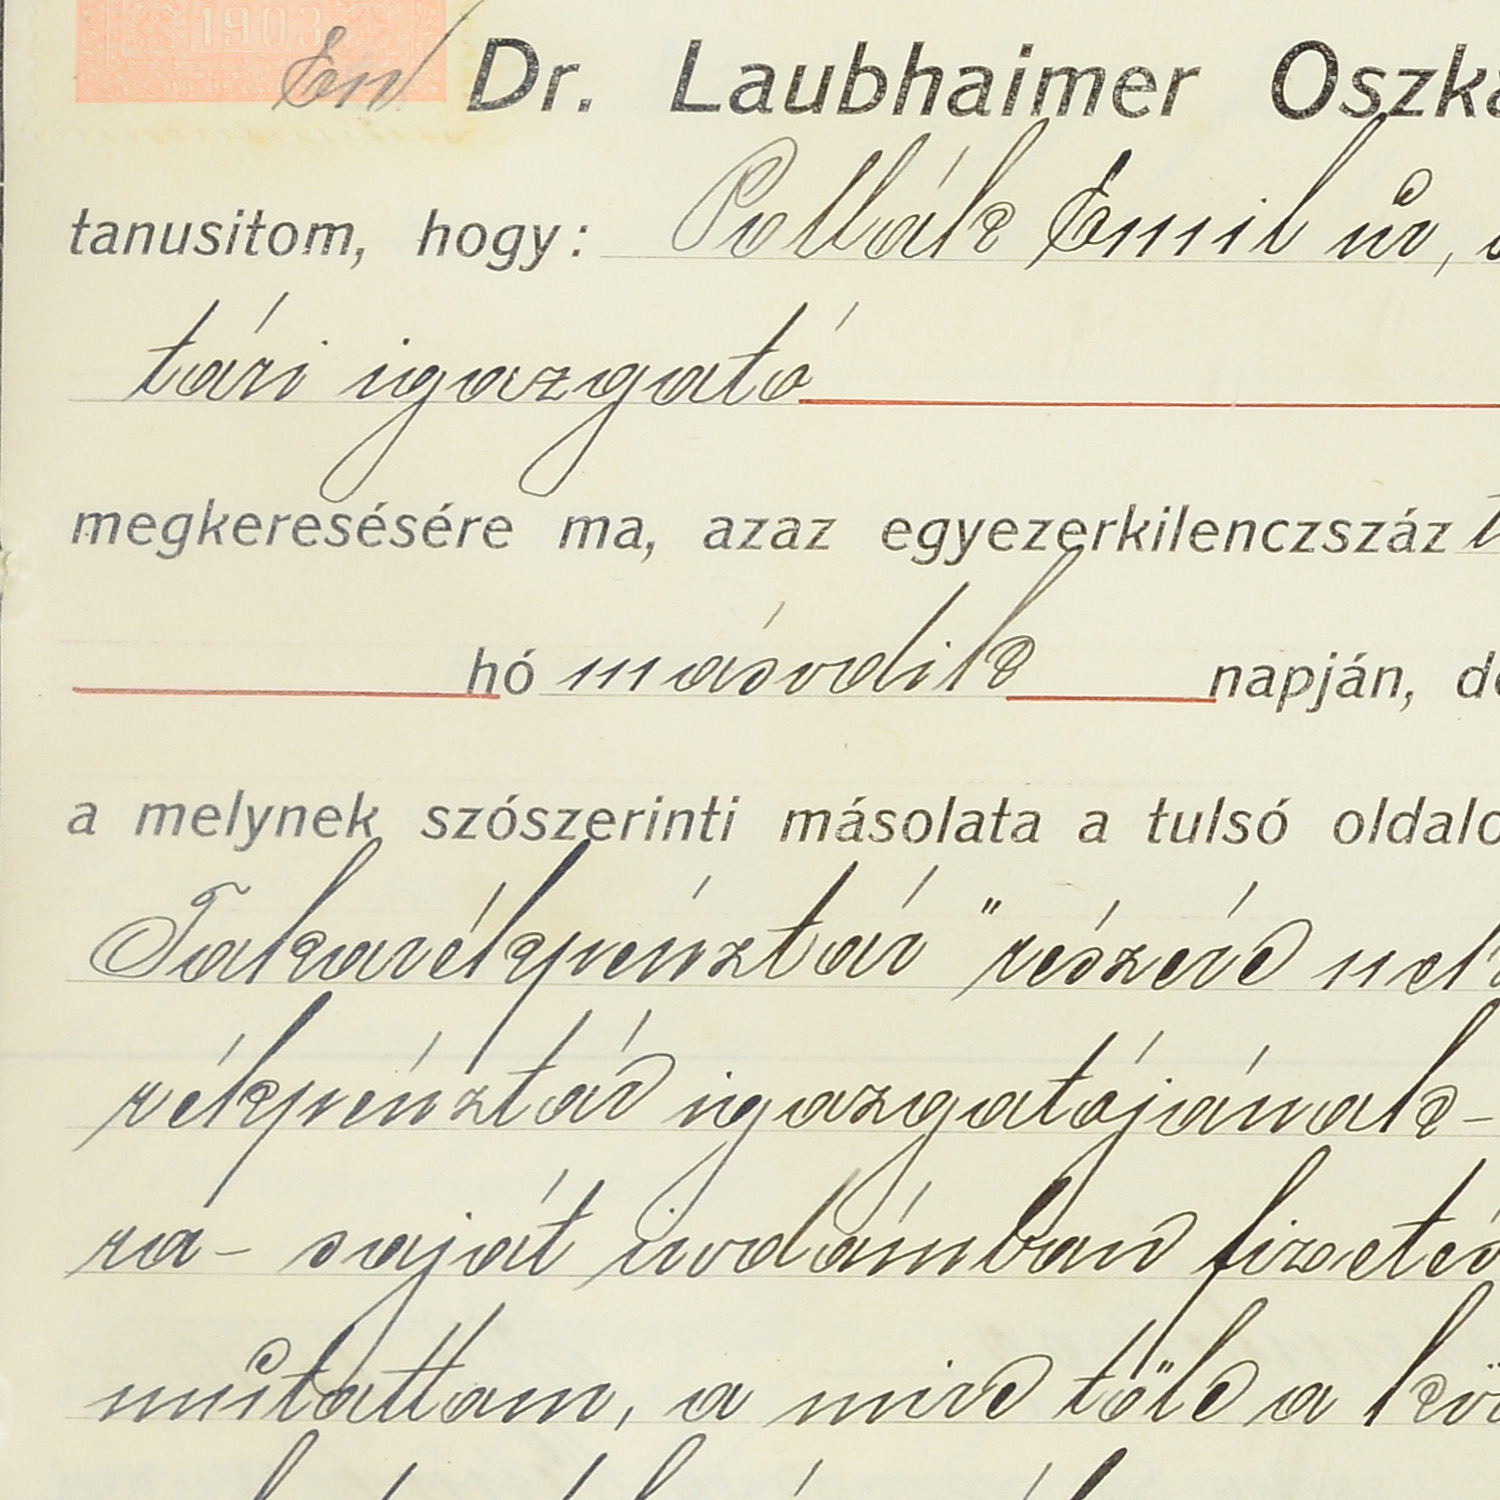 1903
Én Dr. Laubhaimer
tanusitom, hogy: Pollák Emil úr,
tári igazgató
megkeresésére ma, azaz egyezerkilenczszáz
hó második napján,
a melynek szószerinti másolata a tulsó
Takarékpénztár" részére
rékpénztár igazgatójának-
ra- saját irodámban
mutattam, a mire tőle a